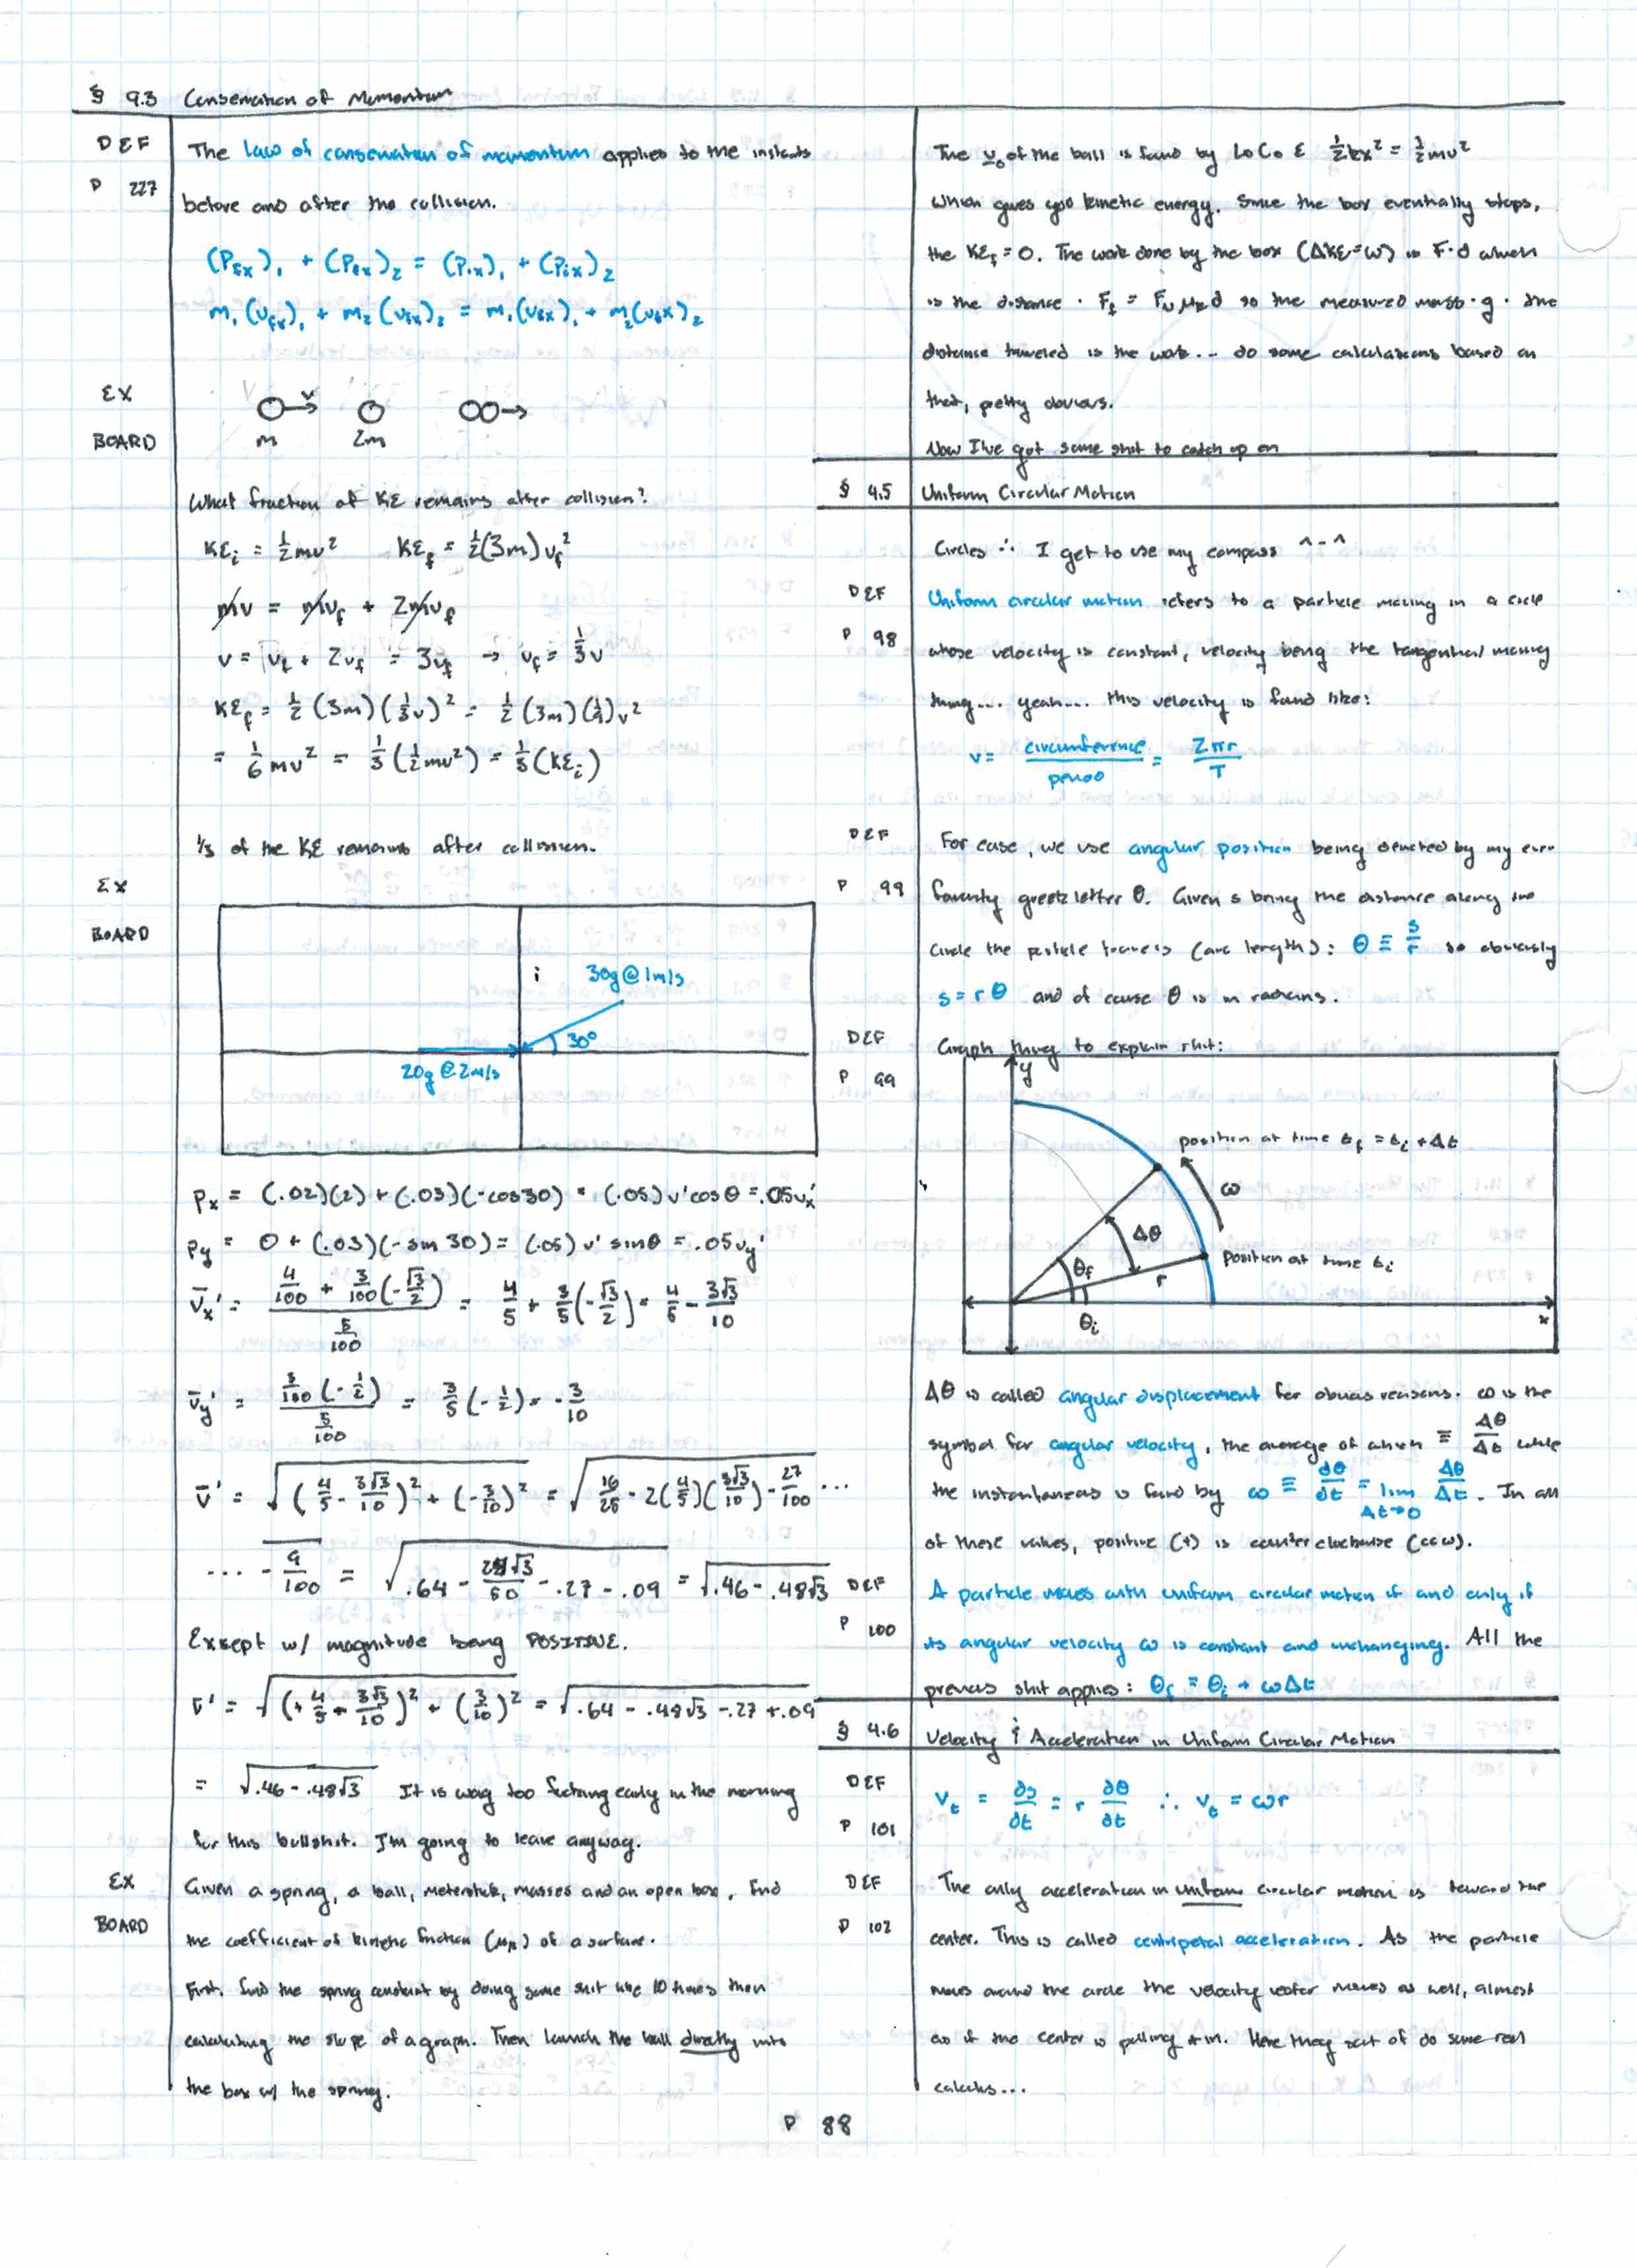 § 9.3 Conservation of Momentum
DEF
P 227
The law of conservation of momentum applies to the instants
before and after the collision.
(Pfx)₁ + (Pfx)₂ = (Pix)₁ + (Pix)₂
m₁(vfx)₁ + m₂(vfx)₂ = m₁(vix)₁ + m₂(vix)₂
EX
BOARD
v
m 2m
What fraction of KE remains after collision?
KEi = ½mv² KEf = ½(3m)vf²
mv = mvf + 2mvf
v = vf + 2vf = 3vf → vf = ⅓v
KEf = ½(3m)(⅓v)² = ½(3m)(1/9)v²
= 1/6 mv² = ⅓(½mv²) = ⅓(KEi)
⅓ of the KE remains after collision.
EX
BOARD
i
30g @ 1m/s
30°
20g @ 2m/s
Px = (.02)(2) + (.03)(-cos30) = (.05)v'cosθ = .05vx'
Py = 0 + (.03)(-sin 30) = (.05)v' sinθ = .05vy'
v̄x' = (4/100 + 3/100(-√3/2)) / (5/100) = 4/5 + 3/5(-√3/2) = 4/5 - 3√3/10
v̄y' = (3/100(-1/2)) / (5/100) = 3/5(-1/2) = -3/10
v̄' = √((4/5 - 3√3/10)² + (-3/10)²) = √(16/25 - 2(4/5)(3√3/10) - 27/100 ...
... - 9/100 = √(.64 - 24√3/50 - .27 - .09) = √(.46 - .48√3)
Except w/ magnitude being POSITIVE.
v̄' = √((+4/5 - 3√3/10)² + (3/10)²) = √(.64 - .48√3 - .27 + .09)
= √(.46 - .48√3) It is way too fucking early in the morning
for this bullshit. I'm going to leave anyway.
EX
BOARD
Given a spring, a ball, meterstick, masses and an open box, find
the coefficient of kinetic friction (μk) of a surface.
First, find the spring constant by doing some shit like 10 times then
calculating the slope of a graph. Then launch the ball directly into
the box w/ the spring.
The v₀ of the ball is found by LoCo E ½kx² = ½mv²
which gives you kinetic energy. Since the box eventually stops,
the KEf = 0. The work done by the box (ΔKE = W) is F·d which
is the distance · Ff = FN μk d so the measured mass · g · the
distance traveled is the work... do some calculations based on
that, pretty obvious.
Now I've got some shit to catch up on
§ 4.5 Uniform Circular Motion
Circles ∴ I get to use my compass ^-^
DEF
P 98
Uniform circular motion refers to a particle moving in a circle
whose velocity is constant, velocity being the tangential moving
thing... yeah... this velocity is found like:
v = circumference/period = 2πr/T
DEF
P 99
For ease, we use angular position being denoted by my ever
favority greek letter θ. Given s being the distance along the
circle the particle travels (arc length): θ ≡ s/r so obviously
s = rθ and of course θ is in radians.
DEF
P 99
Graph thing to explain shit:
y
position at time tf = ti + Δt
ω
Δθ
position at time ti
θf
r
θi
x
Δθ is called angular displacement for obvious reasons. ω is the
symbol for angular velocity, the average of which ≡ Δθ/Δt while
the instantaneous is found by ω ≡ dθ/dt = lim Δt→0 Δθ/Δt. In all
of these values, positive (+) is counterclockwise (ccw).
DEF
P 100
A particle moves with uniform circular motion if and only if
its angular velocity ω is constant and unchanging. All the
previous shit applies: θf = θi + ωΔt
§ 4.6 Velocity & Acceleration in Uniform Circular Motion
DEF
P 101
vt = ∂s/∂t = r ∂θ/∂t ∴ vt = ωr
DEF
P 102
The only acceleration in uniform circular motion is toward the
center. This is called centripetal acceleration. As the particle
moves around the circle the velocity vector moves as well, almost
as if the center is pulling it in. Here they sort of do some real
calculus...
P 88